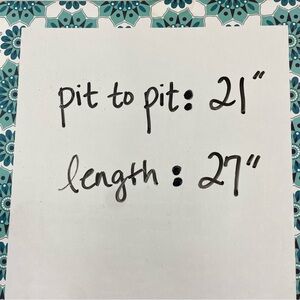 pit to pit: 21"
length: 27"